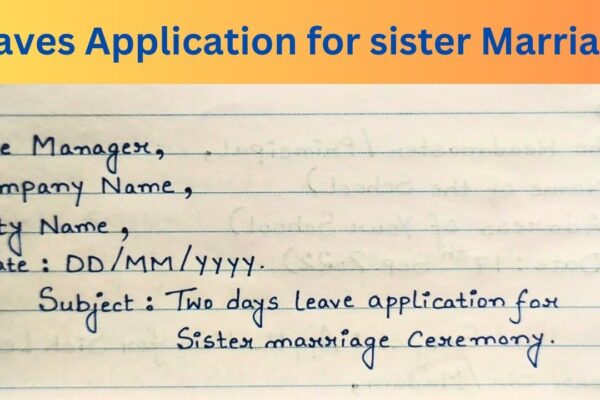 aves Application for sister Marria
e Manager,
mpany Name,
ty Name,
ate : DD/MM/YYYY.
Subject : Two days leave application for
Sister marriage Ceremony.